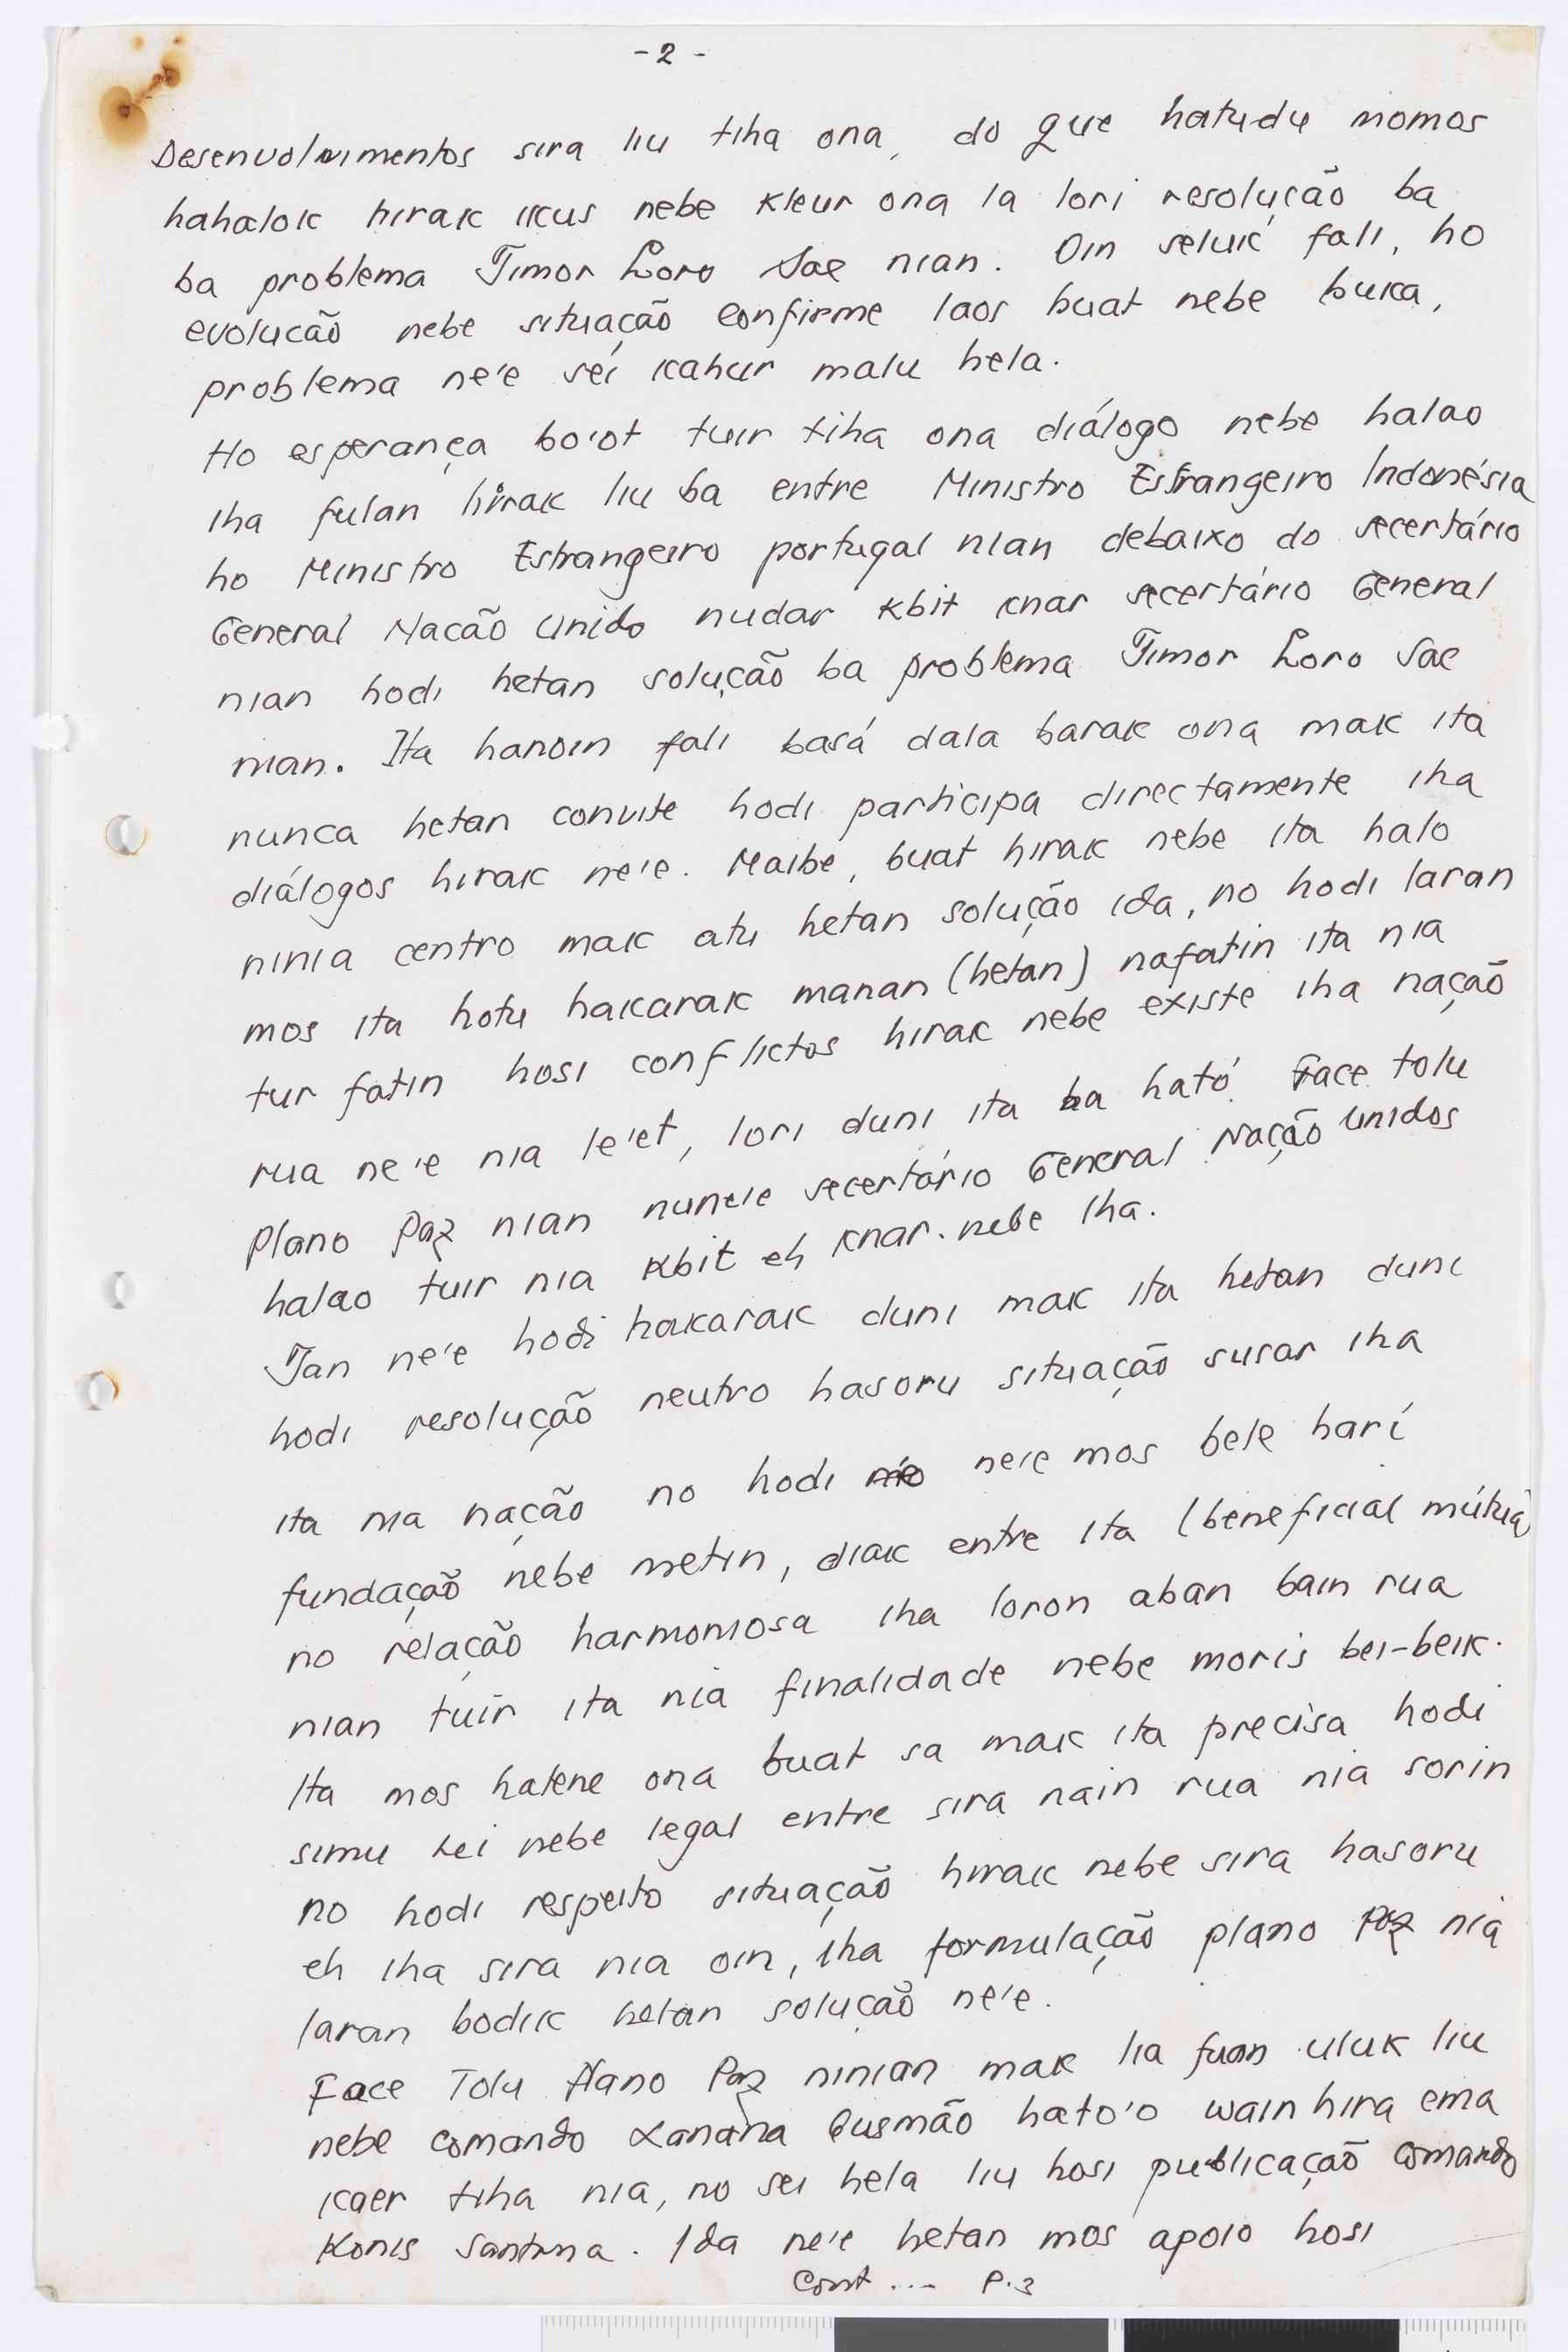 - 2 -
Desenvolvimentos sira liu tiha ona, do que hatudu momos
hahalok hirak ikus nebe kleur ona la lori resolução ba
ba problema Timor Loro Sae nian. Oin seluk fali, ho
evolucão nebe situação confirme laos buat nebe buka,
problema ne'e sei kahur malu hela.
Ho esperança bo'ot tuir tiha ona diálogo nebe halao
iha fulan hirak liu ba entre Ministro Estrangeiro Indonésia
ho Ministro Estrangeiro portugal nian debaixo do secertário
General Nacão Unido nudar kbit knar secertário General
nian hodi hetan solução ba problema Timor Loro Sae
nian. Ita hanoin fali basá dala barak ona mak ita
nunca hetan convite hodi participa directamente iha
diálogos hirak ne'e. Maibe, buat hirak nebe ita halo
ninia centro mak atu hetan solução ida, no hodi laran
mos ita hotu hakarak manan (hetan) nafatin ita nia
tur fatin hosi conflictos hirak nebe existe iha nação
rua ne'e nia le'et, lori duni ita ba ható Face tolu
Plano Paz nian nune'e secertário General Nação Unidos
halao tuir nia kbit eh knar nebe iha.
Tan ne'e hodi hakarak duni mak ita hetan duni
hodi resolução neutro hasoru situação susar iha
ita nia nação no hodi ne'e mos bele harí
fundação nebe metin, diak entre ita (beneficial mútua)
no relação harmoniosa iha loron aban bain rua
nian tuir ita nia finalidade nebe moris bei-beik.
Ita mos hatene ona buat sa mak ita precisa hodi
simu Lei nebe legal entre sira nain rua nia sorin
no hodi respeito situação hirak nebe sira hasoru
eh iha sira nia oin, iha formulação plano Paz nia
laran bodik hetan solução ne'e.
Face Tolu Plano Paz ninian mak lia fuan uluk liu
nebe comando Xanana Gusmão hato'o wain hira ema
kaer tiha nia, no sei hela liu hosi publicação comando
Konis Santana. Ida ne'e hetan mos apoio hosi
Cont .... P.3